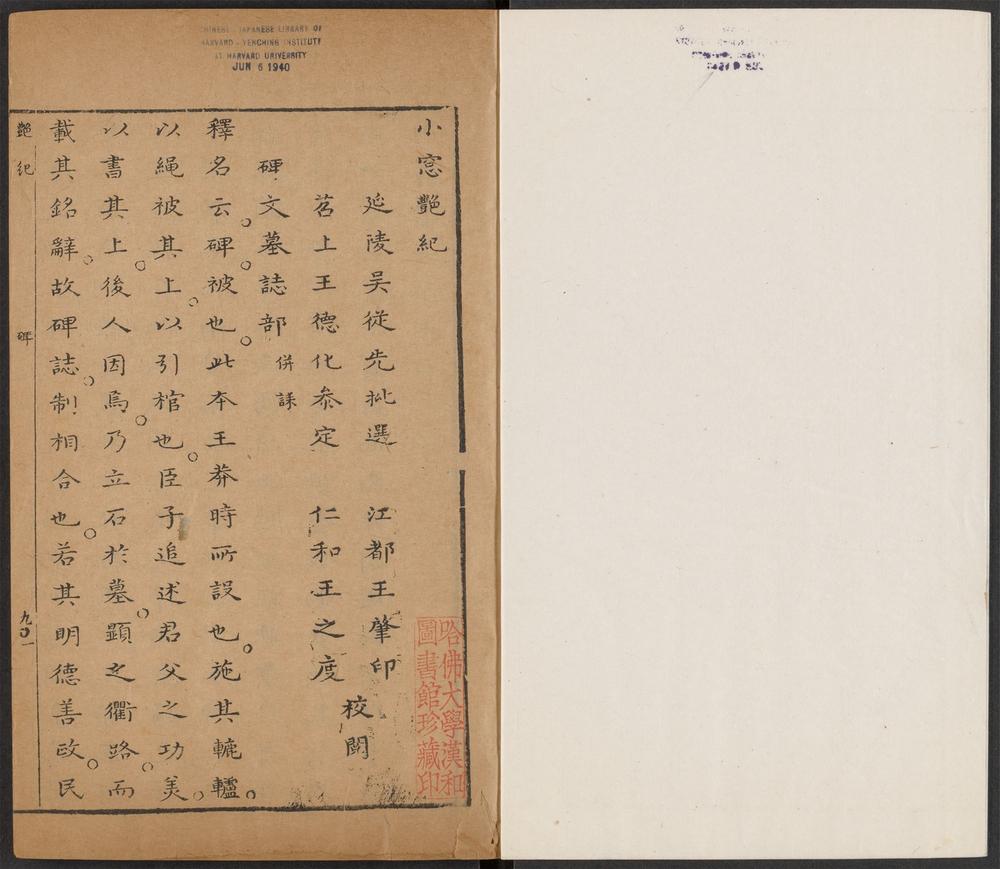 CHINESE - JAPANESE LIBRARY OF
HARVARD - YENCHING INSTITUTE
AT HARVARD UNIVERSITY
JUN 6 1940
小窓艶紀
延陵吴從先批選 江都王肇印
苕上王德化叅定 仁和王之度
校閲
碑文墓誌部 併誄
釋名云碑被也此本王莽時所設也施其轆轤
以繩被其上以引棺也臣子追述君父之功羙
以書其上後人因焉乃立石於墓顯之衢路而
載其銘辭故碑誌制相合也若其明德善政民
艶紀 碑 九〇一
哈佛大學漢和
圖書館珍藏印